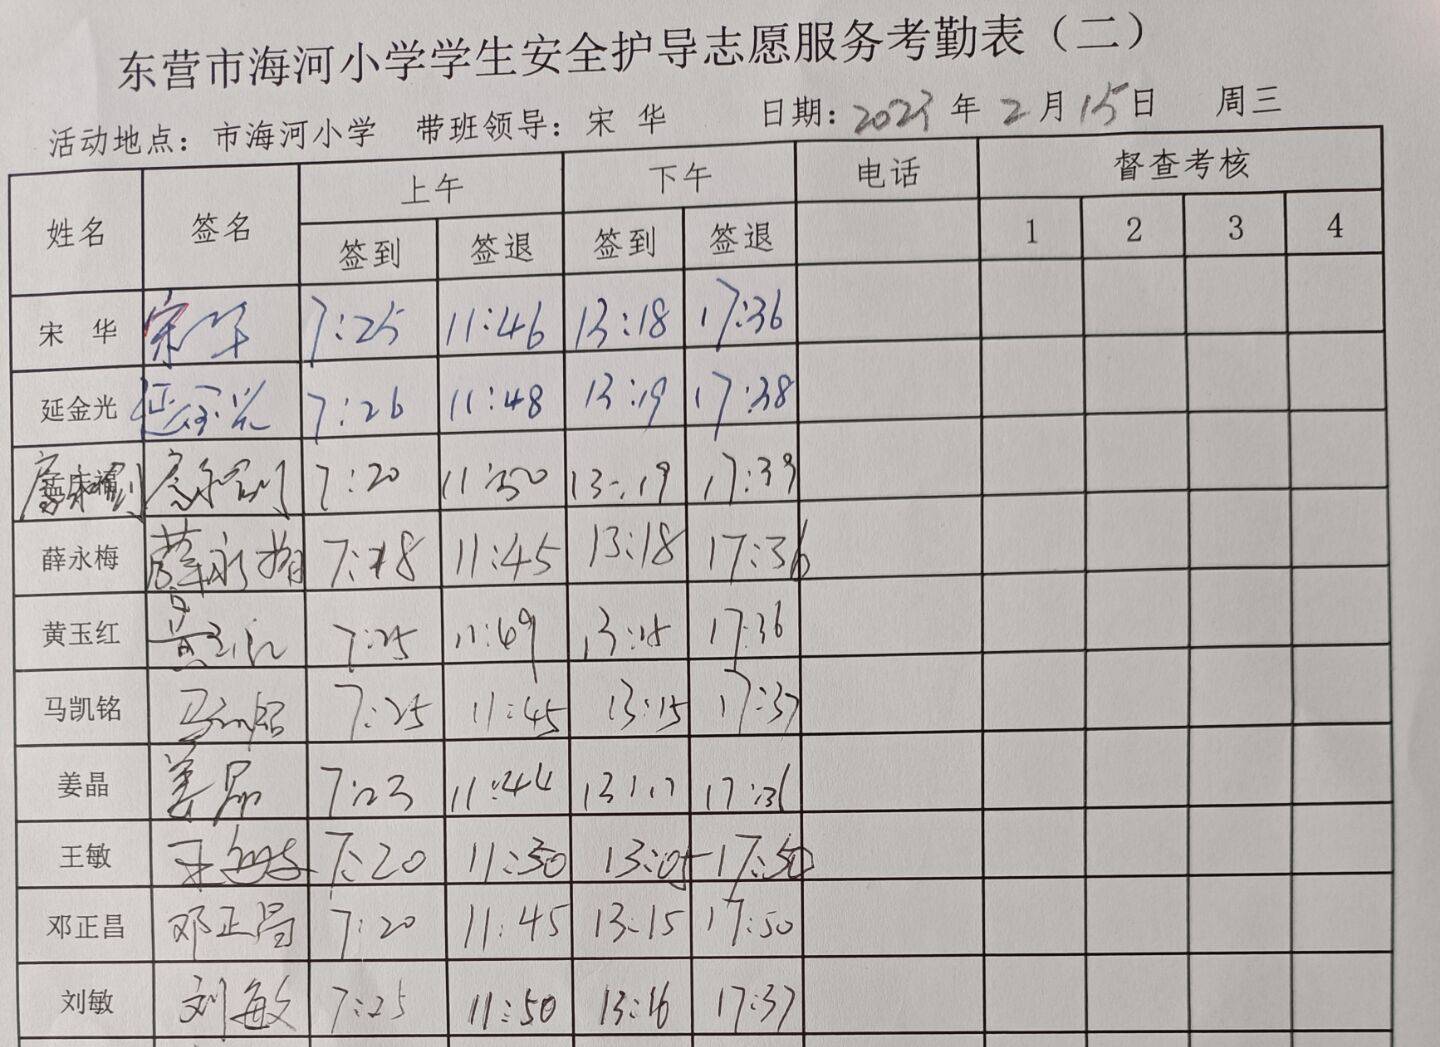 东营市海河小学学生安全护导志愿服务考勤表（二）
活动地点：市海河小学 带班领导：宋 华 日期：2023年2月15日 周三
姓名 签名 上午 下午 电话 督查考核
签到 签退 签到 签退 1 2 3 4
宋 华 宋华 7:25 11:46 13:18 17:36
延金光 延金光 7:26 11:48 13:19 17:38
7:20 11:50 13:19 17:39
薛永梅 薛永梅 7:18 11:45 13:18 17:36
黄玉红 黄玉红 7:25 11:49 13:15 17:36
马凯铭 马凯铭 7:25 11:45 13:15 17:37
姜晶 姜晶 7:23 11:44 13:17 17:36
王敏 王敏 7:20 11:50 13:05 17:50
邓正昌 邓正昌 7:20 11:45 13:15 17:50
刘敏 刘敏 7:25 11:50 13:16 17:37